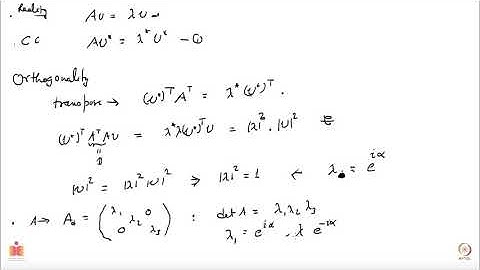 . Reality Aυ = λυ
. CC Aυ* = λ*υ* -
Orthogonality
transpose → (υ*)ᵀ Aᵀ = λ* (υ*)ᵀ.
(υ*)ᵀ AᵀAυ = λ*λ(υ*)ᵀυ = |λ|². |υ|²
|υ|² = |λ|²|υ|² ⇒ |λ|² = 1 ← λ = e^{iα}
. A → A₀ = (λ₁ λ₂ 0 0 λ₃) : det A = λ₁λ₂λ₃
λ₁ = e^{iα} . λ e^{-iα}
NPTEL